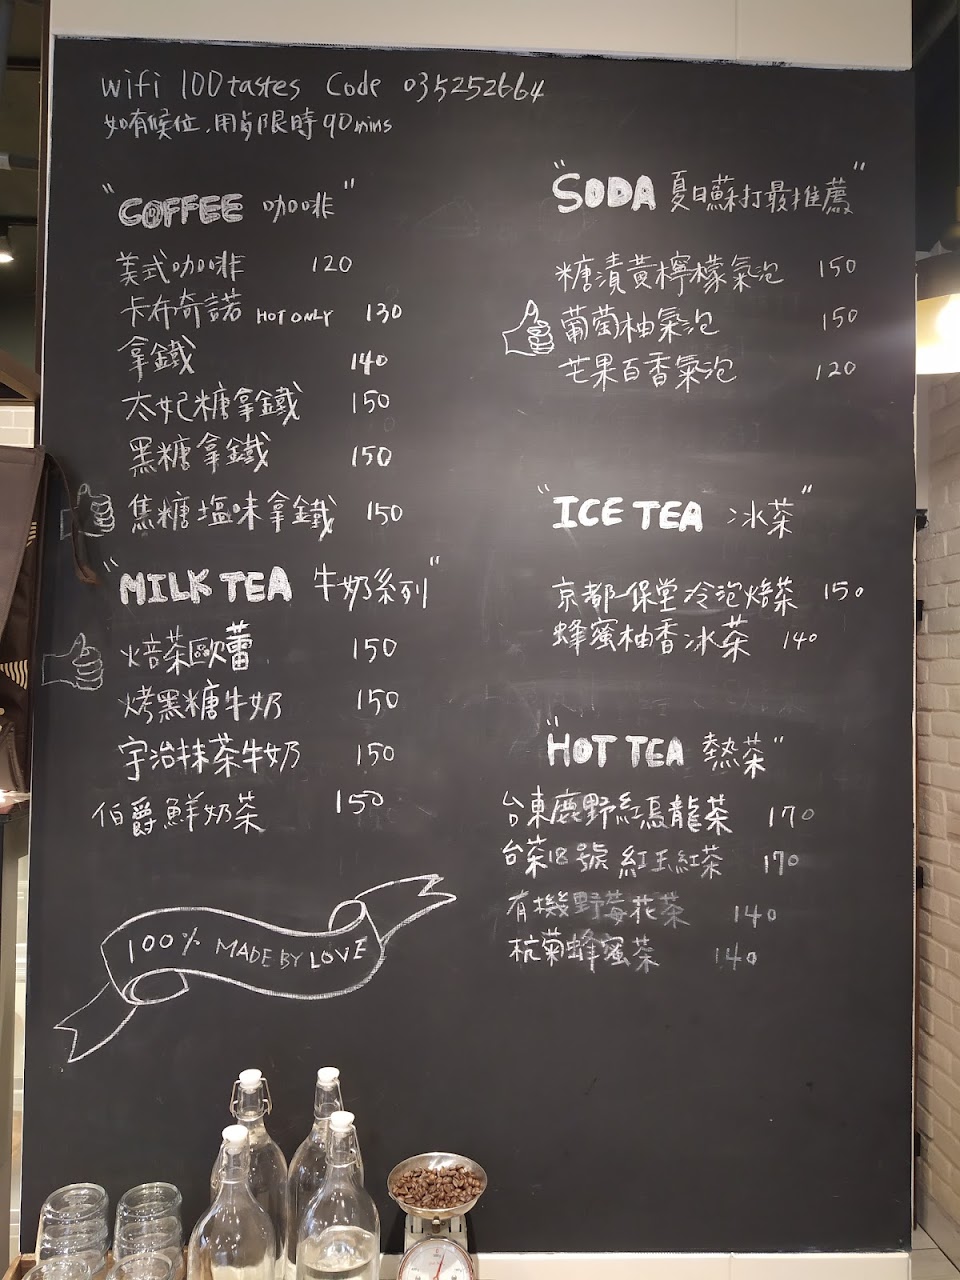 wifi 100tastes Code 035252664
如有候位,用餐限時90mins
"COFFEE 咖啡"
美式咖啡 120
卡布奇諾 HOT ONLY 130
拿鐵 140
太妃糖拿鐵 150
黑糖拿鐵 150
焦糖塩味拿鐵 150
"MILK TEA 牛奶系列"
焙茶歐蕾 150
烤黑糖牛奶 150
宇治抹茶牛奶 150
伯爵鮮奶茶 150
100% MADE BY LOVE
"SODA 夏日蘇打最推薦"
糖漬黃檸檬氣泡 150
葡萄柚氣泡 150
芒果百香氣泡 120
"ICE TEA 冰茶"
京都一保堂冷泡焙茶 150
蜂蜜柚香冰茶 140
"HOT TEA 熱茶"
台東鹿野紅烏龍茶 170
台茶18號 紅玉紅茶 170
有機野莓花茶 140
杭菊蜂蜜茶 140